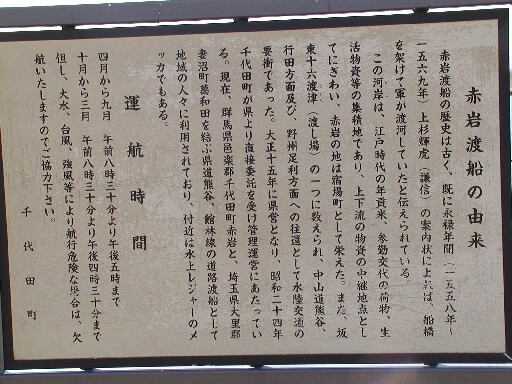 赤岩渡船の由来
赤岩渡船の歴史は古く、既に永禄年間(一五五八年〜
一五六九年)上杉輝虎(謙信)の案内状によれば、船橋
を架けて軍が渡河していたと伝えられている。
この河岸は、江戸時代の年貢米、参勤交代の荷物、生
活物資等の集積地であり、上下流の物資の中継地点とし
てにぎわい、赤岩の地は宿場町として栄えた。また、坂
東十六渡津(渡し場)の一つに数えられ、中山道熊谷、
行田方面及び、野州足利方面への往還として水陸交通の
要衝であった。大正十五年に県営となり、昭和二十四年
千代田町が県より直接委託を受け管理運営にあたってい
る。現在、群馬県邑楽郡千代田町赤岩と、埼玉県大里郡
妻沼町葛和田を結ぶ県道熊谷、館林線の道路渡船として
地域の人々に利用されており、付近は水上レジャーのメ
ッカでもある。
運航時間
四月から九月 午前八時三十分より午後五時まで
十月から三月 午前八時三十分より午後四時三十分まで
但し、大水、台風、強風等により航行危険な場合は、欠
航いたしますのでご協力下さい。
千代田町